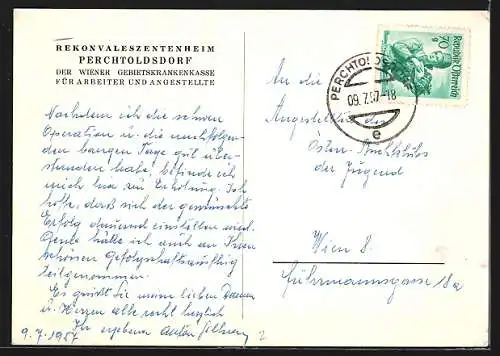 REKONVALESZENTENHEIM
PERCHTOLDSDORF
DER WIENER GEBIETSKRANKENKASSE
FÜR ARBEITER UND ANGESTELLTE
Nachdem ich die schwere
Operation u. die nachfolgen-
den bangen Tage gut über-
standen habe, befinde ich
mich hier zur Erholung. Ich
hoffe, daß sich der gewünschte
Erfolg dauernd einstellen wird.
Gerne hätte ich auch an Ihrem
schönen Gefolgschaftsausflug
teilgenommen.
Es grüßt Sie meine lieben Damen
u. Herren alle recht herzlich
Ihr ergebener Anton
9.7.1957
2
An die
Angestellten des
Österr. Buchklubs
der Jugend
Wien 8.
Fuhrmannsgasse 18a
PERCHTOLDS
09.7.57-18
e
70 g
Republik Österreich